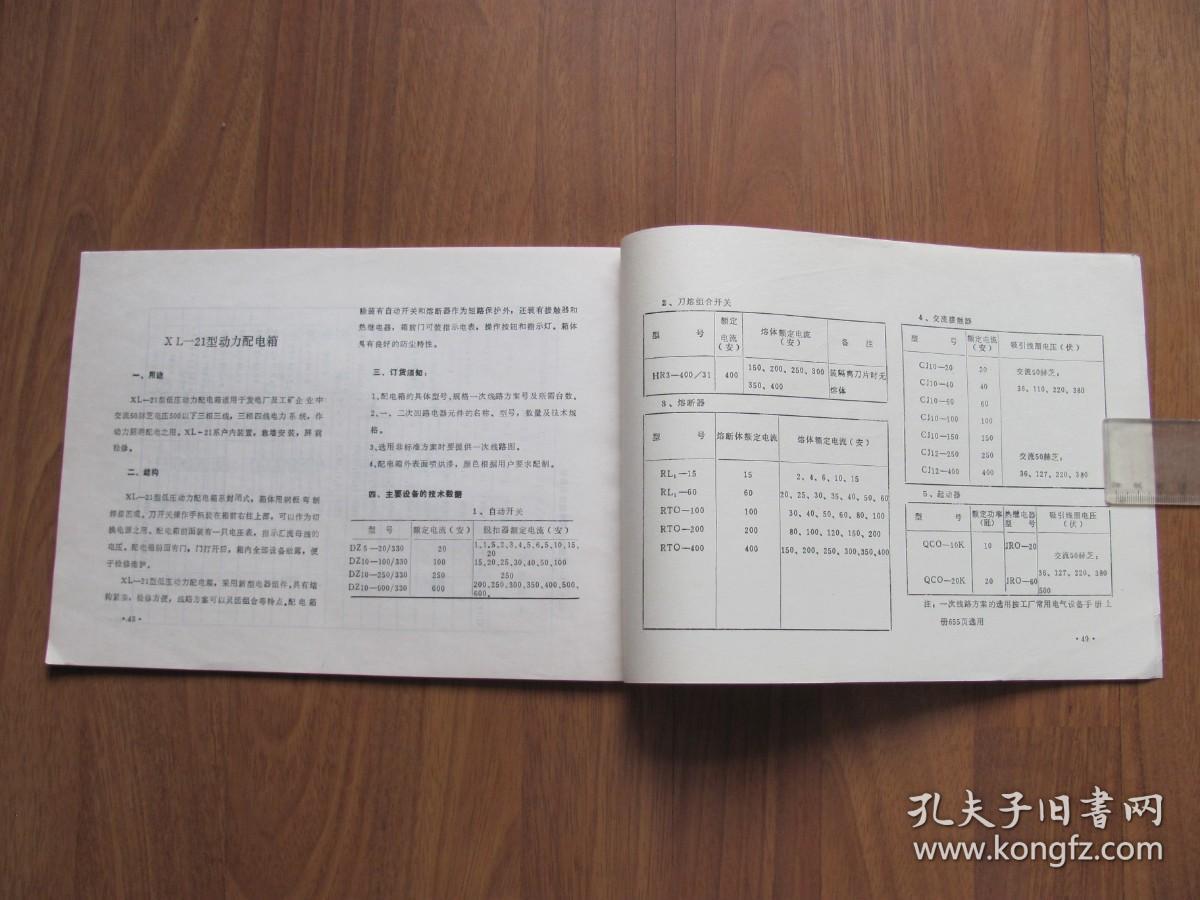 XL—21型动力配电箱
一、用途
XL—21型低压动力配电箱适用于发电厂及工矿企业中
交流50赫芝电压500以下三相三线，三相四线电力系统，作
动力照明配电之用。XL-21系户内装置，靠墙安装，屏前
检修。
二、结构
XL—21型低压动力配电箱系封闭式，箱体用钢板弯制
焊接而成。刀开关操作手柄装在箱前右柱上部，可以作为切
换电源之用。配电箱前面装有一只电压表，指示汇流母线的
电压。配电箱前面有门，门打开后，箱内全部设备敞露，便
于检修维护。
XL—21型低压动力配电箱，采用新型电器组件，具有结
构紧凑，检修方便，线路方案可以灵活组合等特点。配电箱
·48·
除装有自动开关和熔断器作为短路保护外，还装有接触器和
热继电器，箱前门可装指示电表，操作按钮和指示灯。箱体
具有良好的防尘特性。
三、订货须知：
1、配电箱的具体型号、规格一次线路方案号及所需台数。
2、一、二次回路电器元件的名称，型号，数量及技术规
格。
3、选用非标准方案时要提供一次线路图。
4、配电箱外表面喷烘漆，颜色根据用户要求配制。
四、主要设备的技术数据
1、自动开关
型 号 额定电流（安） 脱扣器额定电流（安）
DZ5—20/330 20 1,1,5,2,3,4,5,6,5,10,15,
20
DZ10—100/330 100 15,20,25,30,40,50,100
DZ10—250/330 250 250
DZ10—600/330 600 200,250,300,350,400,500,
600,
2、刀熔组合开关
型 号 额定电流（安） 熔体额定电流（安） 备 注
HR3—400／31 400 150、200、250、300 装隔离刀片时无
350、400 熔体
3、熔断器
型 号 熔断体额定电流 熔体额定电流（安）
RL₁—15 15 2、4、6、10、15
RL₁—60 60 20、25、30、35、40、50、60
RTO—100 100 30、40、50、60、80、100
RTO—200 200 80、100、120、150、200
RTO—400 400 150、200、250、300、350、400
4、交流接触器
型 号 额定电流（安） 吸引线圈电压（伏）
CJ10—20 20 交流50赫芝；
CJ10—40 40 36、110、220、380
CJ10—60 60
CJ10—100 100
CJ10—150 150
CJ12—250 250 交流50赫芝；
CJ12—400 400 36、127、220、380
5、起动器
型 号 额定功率（瓩） 热继电器型 号 吸引线圈电压（伏）
QCO—10K 10 JRO—20 交流50赫芝；
QCO—20K 20 JRO—60 36、127、220、380
500
注：一次线路方案的选用按工厂常用电气设备手册上
册655页选用
·49·
孔夫子旧书网
www.kongfz.com